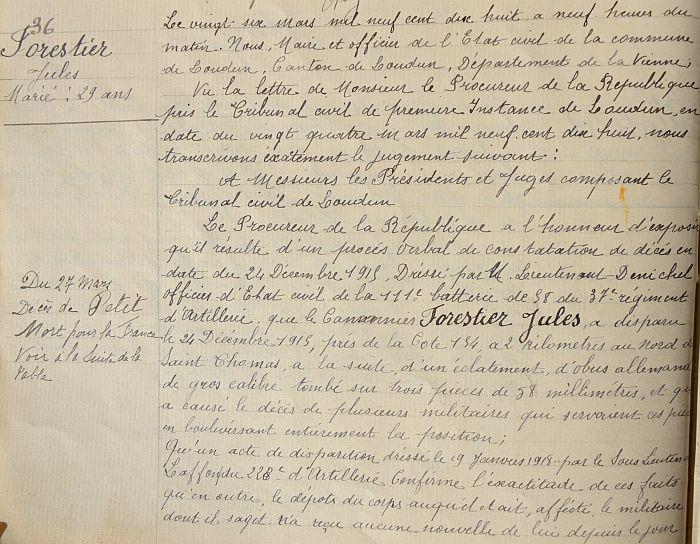 36
Forestier
Jules
Marié : 29 ans
Le vingt six mars mil neuf cent dix huit a neuf heures du
matin. Nous, Maire et officier de l'Etat civil de la commune
de Loudun, Canton de Loudun, Département de la Vienne;
Vu la lettre de Monsieur le Procureur de la République
près le Tribunal civil de première Instance de Loudun, en
date du vingt quatre mars mil neuf cent dix huit, nous
transcrivons exactement le jugement suivant :
A Messieurs les Présidents et Juges composant le
Tribunal civil de Loudun
Le Procureur de la République a l'honneur d'exposer
qu'il résulte d'un procès verbal de constatation de décès en
date du 24 Décembre 1915, Dressé par M. Lieutenant Denichel
officier d'Etat civil de la 111e batterie de 58 du 37e régiment
d'Artillerie, que le Canonnier Forestier Jules, a disparu
le 24 Décembre 1915, près de la Cote 154, a 2 kilomètres au nord de
Saint Thomas, a la suite, d'un éclatement, d'obus allemand
de gros calibre tombé sur trois pièces de 58 millimètres, et qui
a causé le décès de plusieurs militaires qui servaient ces pièces
en bouleversant entièrement la position;
Qu'un acte de disparition dressé le 19 Janvier 1918 par le Sous Lieutenant
Laffon du 228e d'Artillerie Confirme l'exactitude de ces faits
qu'en outre, le dépôts du corps auquel était, affecté, le militaire
dont il s'agit n'a reçu aucune nouvelle de lui depuis le jour
Du 27 Mars
Décès de Petit
Mort pour la France
Voir à la Suite de la
Table